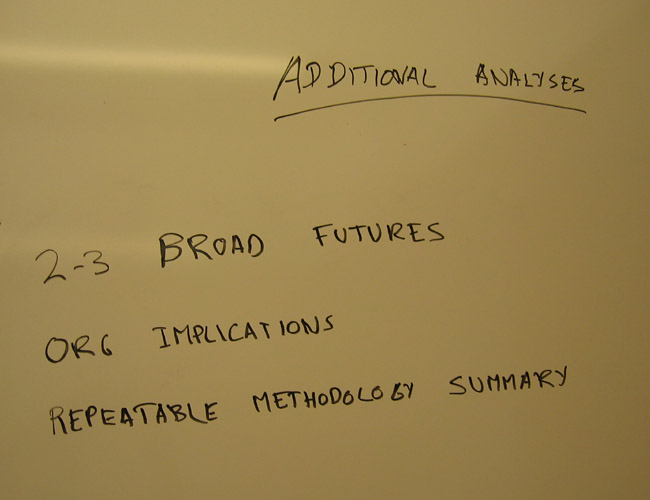 ADDITIONAL ANALYSES
2-3 BROAD FUTURES
ORG IMPLICATIONS
REPEATABLE METHODOLOGY SUMMARY